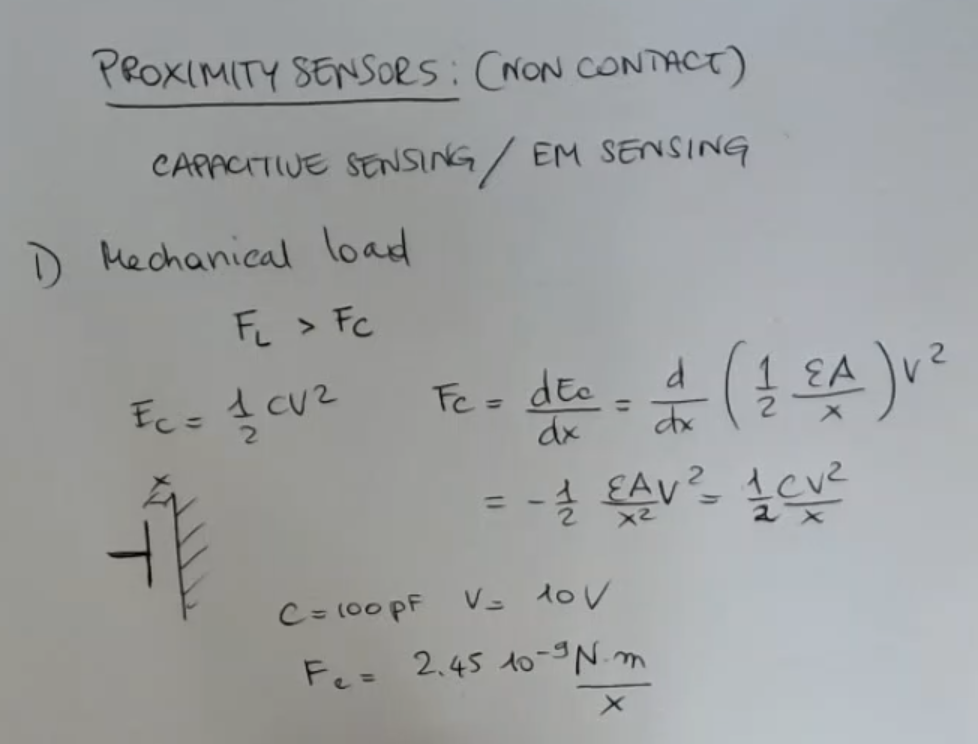 PROXIMITY SENSORS: (NON CONTACT)
CAPACITIVE SENSING / EM SENSING
1) Mechanical load
F_L > F_C
E_C = 1/2 CV² F_C = dE_C/dx = d/dx (1/2 εA/x) V²
= -1/2 εA/x² V² = 1/2 CV²/x
x
C = 100 pF V = 10V
F_e = 2.45 10⁻⁹ N.m/x